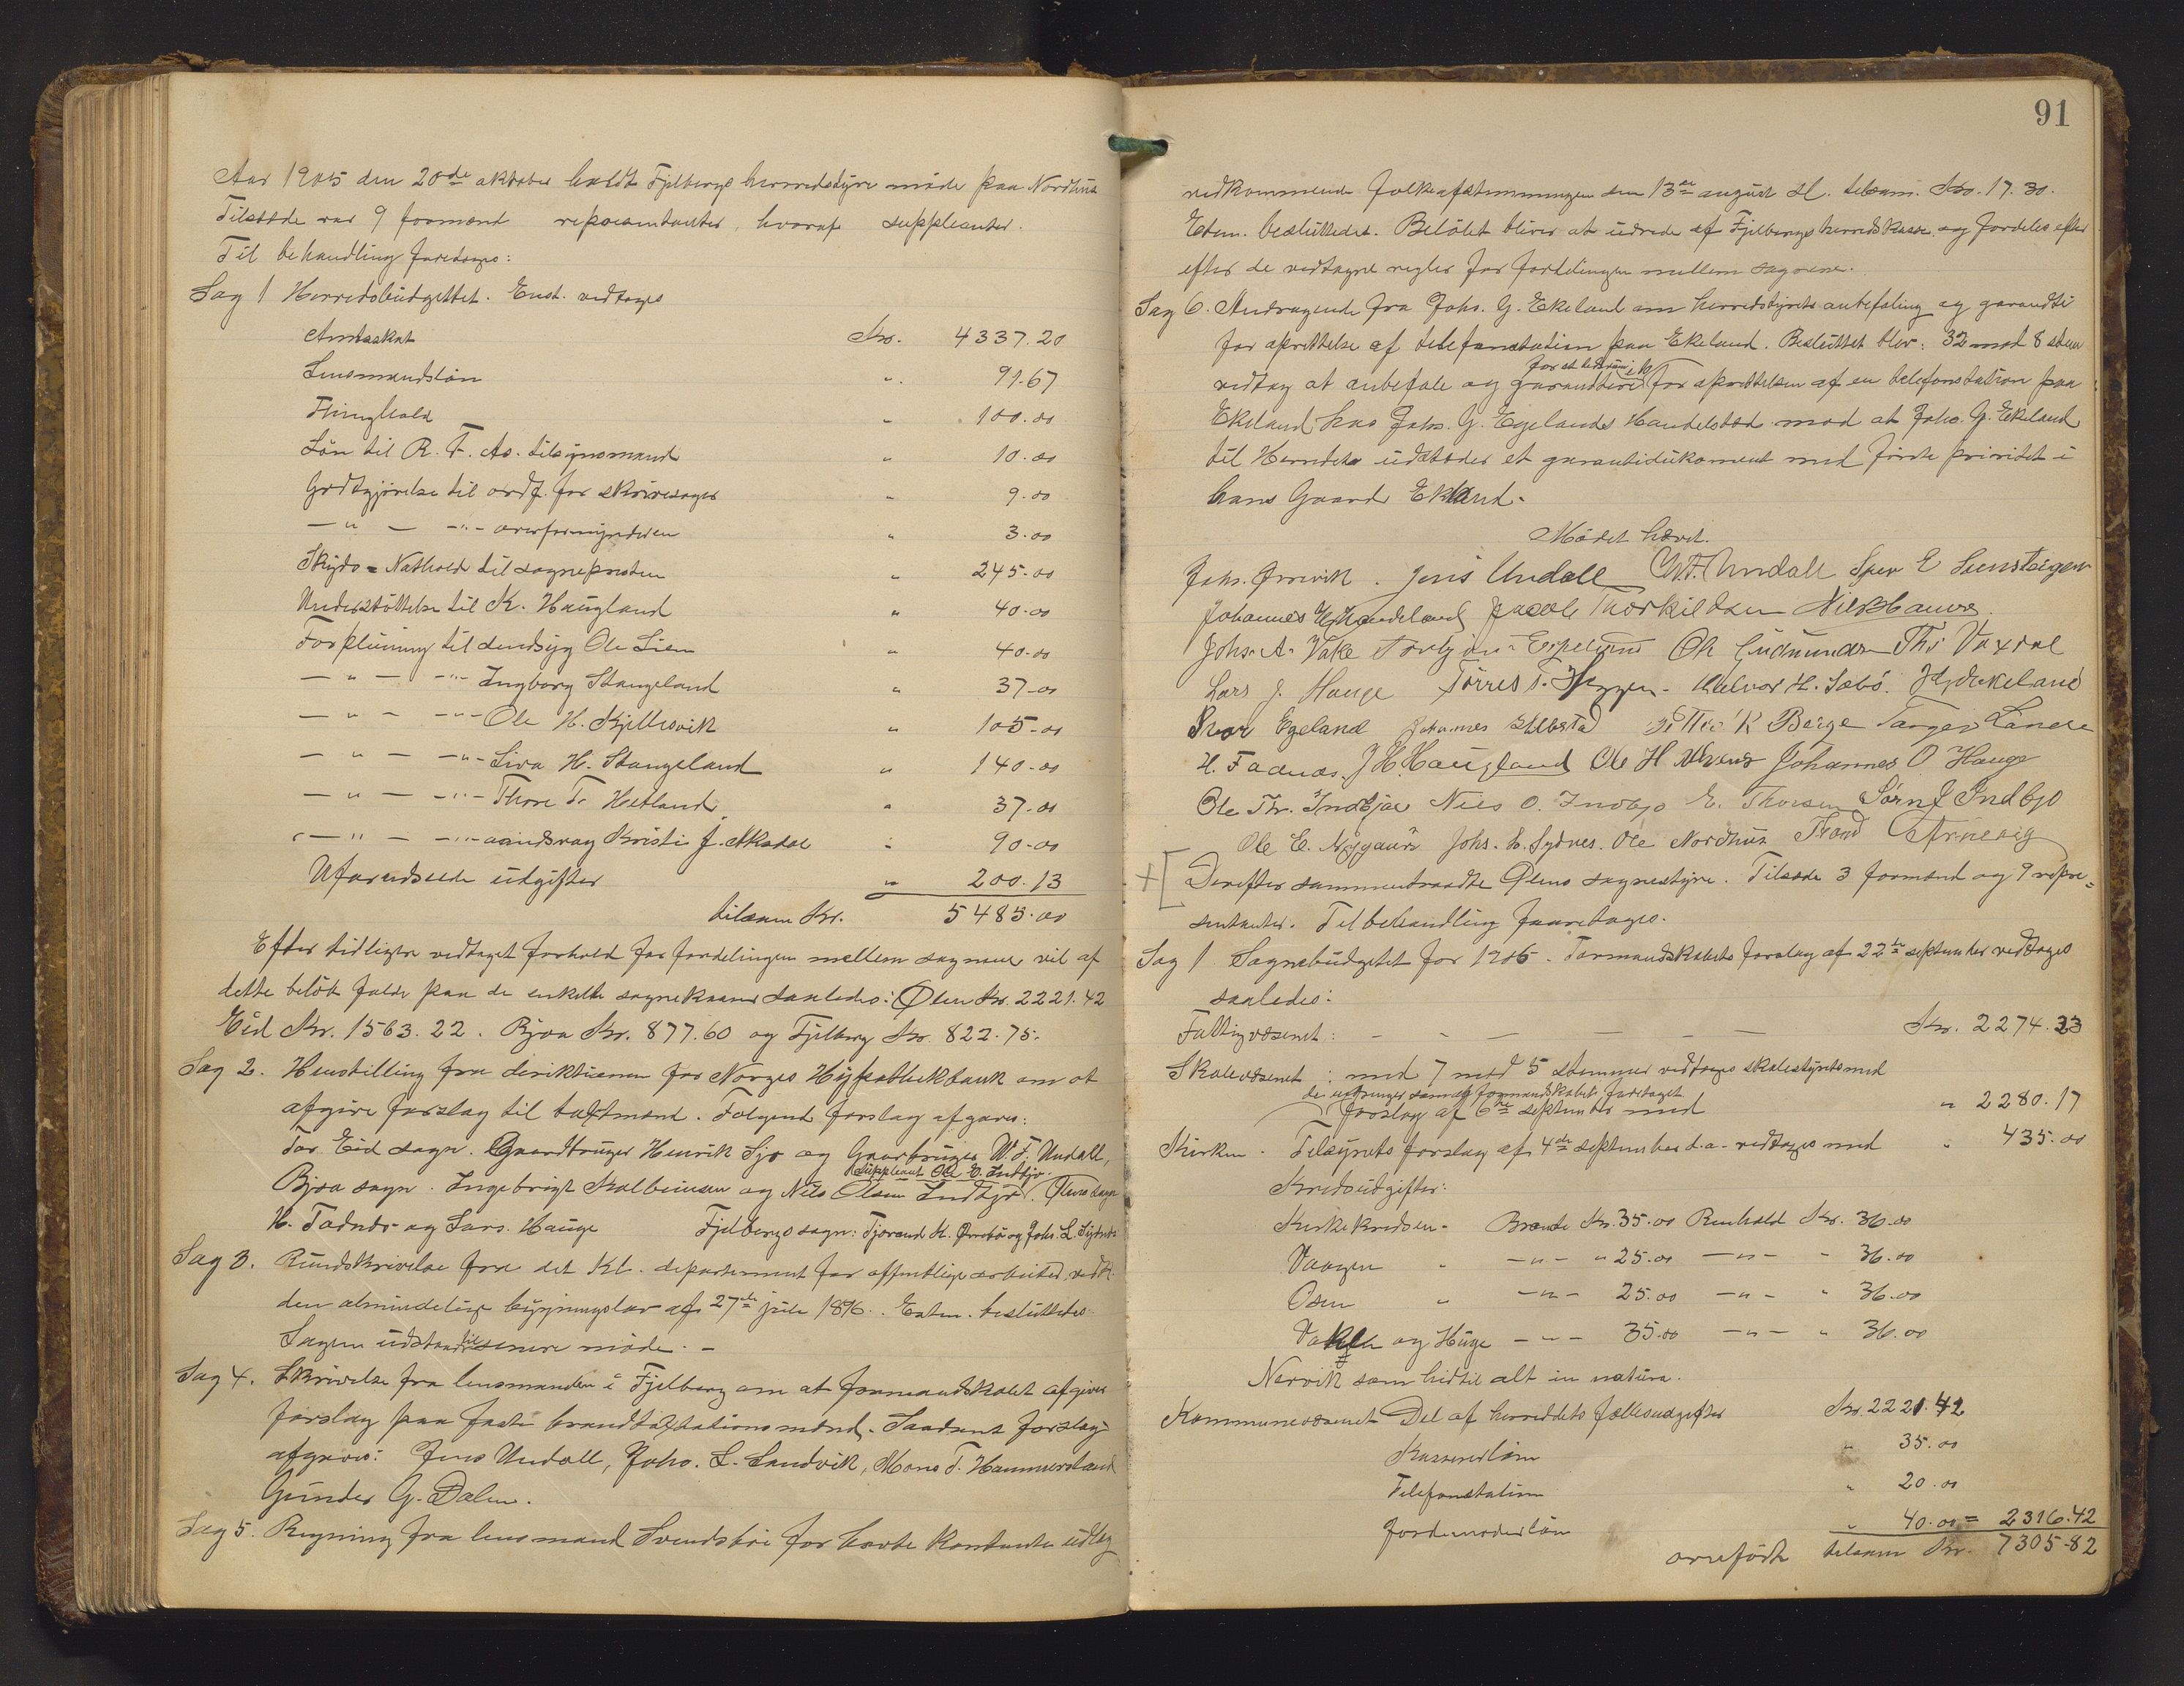 Aar 1905 den 20de oktober holdt Fjelbergs herredsstyre møde paa Nordhus
Tilstede var 9 formænd repræsentanter, hvoraf suppleanter.
Til behandling foretoges:
Sag 1 Herredsbudgettet. Enst. vedtoges
Amtsskat Kr. 4337.20
Lensmandsløn " 91.67
Thinghold " 100.00
Løn til R. F. As. tilsynsmand " 10.00
Godtgjørelse til ordf. for skrivesager " 9.00
— " — — " — overformynderen " 3.00
Skyds = Nathold til sognepresten " 245.00
Understøttelse til K. Haugland " 40.00
Forpleining til sindsyg Ole Lien " 40.00
— " — — " — Ingborg Stangeland " 37.00
— " — — " — Ole H. Kjellesvik " 105.00
— " — — " — Siva H. Stangeland " 140.00
— " — — " — Thore T. Hetland " 37.00
— " — — " — aandsvag Kristi J. " 90.00
Uforudseede udgifter " 200.13
tilsam Kr. 5485.00
Efter tidligere vedtaget forhold for fordelingen mellem sognene vil af
dette beløb falde paa de enkelte sognekasser saaledes: Ølen Kr. 2221.42
Eid Kr. 1563.22. Bjoa Kr. 877.60 og Fjelberg Kr. 822.75.
Sag 2. Henstilling fra direktionen for Norges Hypothekbank om at
afgive forslag til taxtmænd. Følgende forslag afgaves:
For Eid sogn. Gaardbruger Henrik og Gaardbruger W. F. Undall,
Suppleant Ole E. Indbjo.
Bjoa sogn. Ingebrigt og Nils Olsen Indbjo. Ølens sogn
H. Fadnes og Lars Hauge Fjelbergs sogn: og Johs. L. Sydnes
Sag 3. Rundskrivelse fra det Kl. departement for offentlige arbeider vedk.
den almindelige bygningslov af 27de juli 1896. Enstm. besluttedes:
Sagen udstaar til senere møde. —
Sag 4. Skrivelse fra lensmanden i Fjelberg om at formandskabet afgiver
forslag paa faste brandtaxtationsmænd. Saadant forslag
afgaves: Jens Undall, Johs. L. Sandvik, Mons T. Hammersland
Gunder G. Dalen.
Sag 5. Regning fra lensmand Svendsbøe for havte kontante udlæg
91
vedkommende folkeafstemningen den 13de august d. tilsam. Kr. 17.30.
Estem. besluttedes. Beløbet bliver at udrede af Fjelbergs herredskasse og fordeles efter
efter de vedtagne regler for fordelingen mellem sognene.
Sag 6. Andragende fra Johs. G. Ekeland om herredsstyrets anbefaling og garandti
for oprettelse af telefonstation paa Ekeland. Besluttet blev: 32 mod 8 stem
vedtog at anbefale og garandtere for oprettelsen af en telefonstation paa
Ekeland hos Johs. G. Egelands Handelsted mod at Johs. G. Ekeland
til Herredet udsteder et garantidokument med første prioritet i
hans Gaard Ekland.
Mødet hævet.
Johs. Ørrevik. Jens Undall W. F. Undall E
Johannes Jacob Thorkildsen
Johs. A. Vake Torbjørn Espeland Ole Gudmundsen Ths Vaxdal
Lars J. Hauge Tørres T. Halvor H. Sæbø.
Ivar Egeland Johannes K Berge
H. Fadnes. J H Haugland Ole H Johannes O Hauge
Ole Th. Indbjoe Nils O. Indbjo E. Thorsen Sørn J Indbjo
Ole E. Nygaard Johs. L. Sydnes. Ole Nordhus Trond
+ Derefter sammentraadte Ølens sognestyre. Tilstede 3 formænd og 9 repræ=
sentanter. Til behandling foretoges.
Sag 1 Sognebudgetet for 1906. Formandskabets forslag af 22de september vedtoges
saaledes:
Fattigvæsenet: — — — — Kr. 2274.23
Skolevæsenet: med 7 mod 5 stemmer vedtoges skolestyrets med
de endringer som af formandskabet foretaget
forslag af 6te september med " 2280.17
Kirken. Tilsynets forslag af 4de september d.a. vedtoges med " 435.00
Kredsudgifter:
Kirkekredsen. Brænde Kr. 35.00 Renhold Kr. 36.00
Vaagen " — " — " 25.00 — " — " 36.00
Osen " — " — 25.00 — " — " 36.00
Vake og Høge — " — 35.00 — " — " 36.00
Nervik som hidtil alt in natura.
Kommunevæsenet Del af herredets fællesudgifter Kr. 2221.42
Kassererløn " 35.00
Telefonstation " 20.00
Jordemoderløn " 40.00 = 2316.42
overføres tilsam Kr. 7305.82